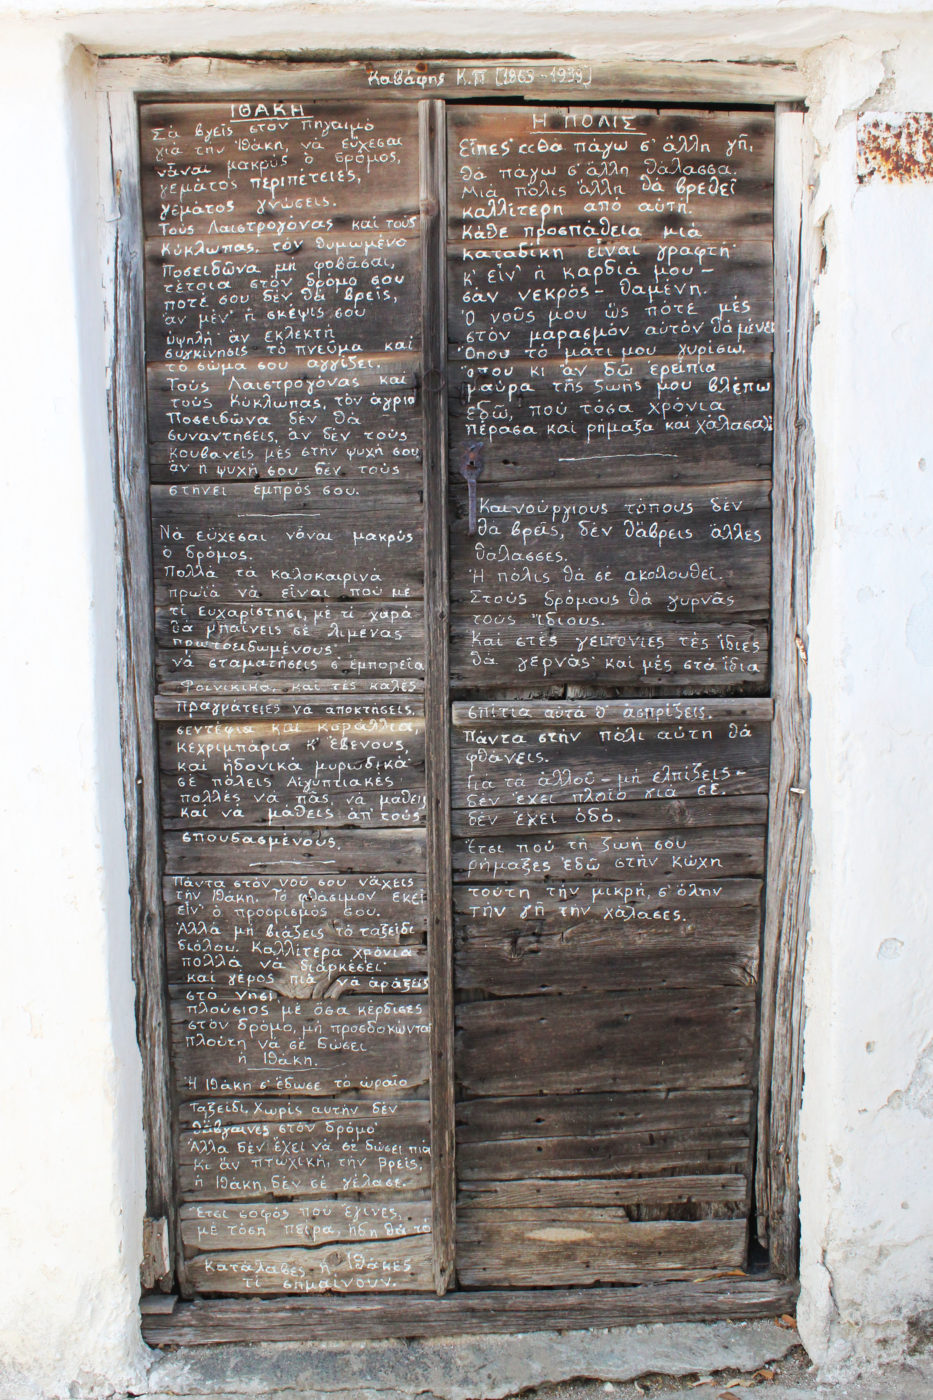 Καβάφης Κ.Π [1863-1933]
ΙΘΑΚΗ
Σά βγεῖς στόν πηγαιμό
γιά τήν Ἰθάκη, νά εὔχεσαι
νἆναι μακρύς ὁ δρόμος,
γεμάτος περιπέτειες,
γεμάτος γνώσεις.
Τούς Λαιστρυγόνας καί τούς
Κύκλωπας, τόν θυμωμένο
Ποσειδῶνα μή φοβᾶσαι,
τέτοια στόν δρόμο σου
ποτέ σου δέν θά βρεῖς,
ἄν μέν' ἡ σκέψις σου
ὑψηλή ἄν ἐκλεκτή
συγκίνησις τό πνεῦμα καί
τό σῶμα σου ἀγγίζει.
Τούς Λαιστρυγόνας καί
τούς Κύκλωπας, τόν ἄγριο
Ποσειδῶνα δέν θά
συναντήσεις, ἄν δέν τούς
κουβανεῖς μές στην ψυχή σου
ἄν ἡ ψυχή σου δέν τούς
στήνει ἐμπρός σου.
Νά εὔχεσαι νἄναι μακρύς
ὁ δρόμος.
Πολλά τά καλοκαιρινά
πρωϊά νά εἶναι πού μέ
τί εὐχαρίστησι, μέ τί χαρά
θά μπαίνεις σέ λιμένας
πρωτοειδωμένους·
νά σταματήσεις σ' ἐμπορεῖα
Φοινικικά, καί τές καλές
πραγμάτειες ν' ἀποκτήσεις,
σεντέφια καί κοράλλια,
κεχριμπάρια κ' ἔβενους,
καί ἡδονικά μυρωδικά
σέ πόλεις Αἰγυπτιακές
πολλές νά πᾶς, νά μάθεις
καί νά μάθεις ἀπ' τούς
σπουδασμένους.
Πάντα στόν νοῦ σου νἄχεις
τήν Ἰθάκη. Τό φθάσιμον ἐκεῖ
εἶν' ὁ προορισμός σου.
Ἀλλά μή βιάζεις τό ταξεῖδι
διόλου. Καλλίτερα χρόνια
πολλά νά διαρκέσει
καί γέρος πιά νά ἀράξεις
στό νησί
πλούσιος μέ ὅσα κέρδισες
στόν δρόμο, μή προσδοκῶντας
πλούτη νά σέ δώσει
ἡ Ἰθάκη.
Ἡ Ἰθάκη σ' ἔδωσε τό ὡραῖο
Ταξεῖδι. Χωρίς αὐτήν δέν
θἄβγαινες στόν δρόμο
Ἀλλά δέν ἔχει νά σέ δώσει πιά
κι ἄν πτωχική, τήν βρεῖς,
ἡ Ἰθάκη δέν σέ γέλασε.
Ἔτσι σοφός πού ἔγινες,
μέ τόση πείρα, ἤδη θά τό
Κατάλαβες ἡ Ἰθάκες
τί σημαίνουν.
Η ΠΟΛΙΣ
Εἶπες· «θά πάγω σ' ἄλλη γῆ,
θά πάγω σ' ἄλλη θάλασσα.
Μιά πόλις ἄλλη θά βρεθεῖ
καλλίτερη ἀπό αὐτή.
Κάθε προσπάθεια μιά
καταδίκη εἶναι γραφτή·
κ' εἶν' ἡ καρδιά μου –
σάν νεκρός – θαμένη.
Ὁ νοῦς μου ὡς πότε μές
στόν μαρασμόν αὐτόν θά μένει
Ὅπου τό μάτι μου γυρίσω,
ὅπου κι ἄν δῶ ἐρείπια
μαῦρα τῆς ζωῆς μου βλέπω
ἐδῶ, πού τόσα χρόνια
πέρασα καί ρήμαξα καί χάλασα»
Καινούργιους τόπους δέν
θά βρεῖς, δέν θἄβρεις ἄλλες
θάλασσες.
Ἡ πόλις θά σέ ἀκολουθεῖ.
Στούς δρόμους θά γυρνᾶς
τούς ἴδιους.
Καί στές γειτονιές τές ἴδιες
θά γερνᾶς· καί μές στά ἴδια
σπίτια αὐτά θ' ἀσπρίζεις.
Πάντα στήν πόλι αὐτή θά
φθάνεις.
Γιά τά ἀλλοῦ – μή ἐλπίζεις –
δέν ἔχει πλοῖο γιά σέ,
δέν ἔχει ὁδό.
Ἔτσι πού τή ζωή σου
ρήμαξες ἐδῶ στήν κώχη
τούτη τήν μικρή, σ' ὅλην
τήν γῆ την χάλασες.